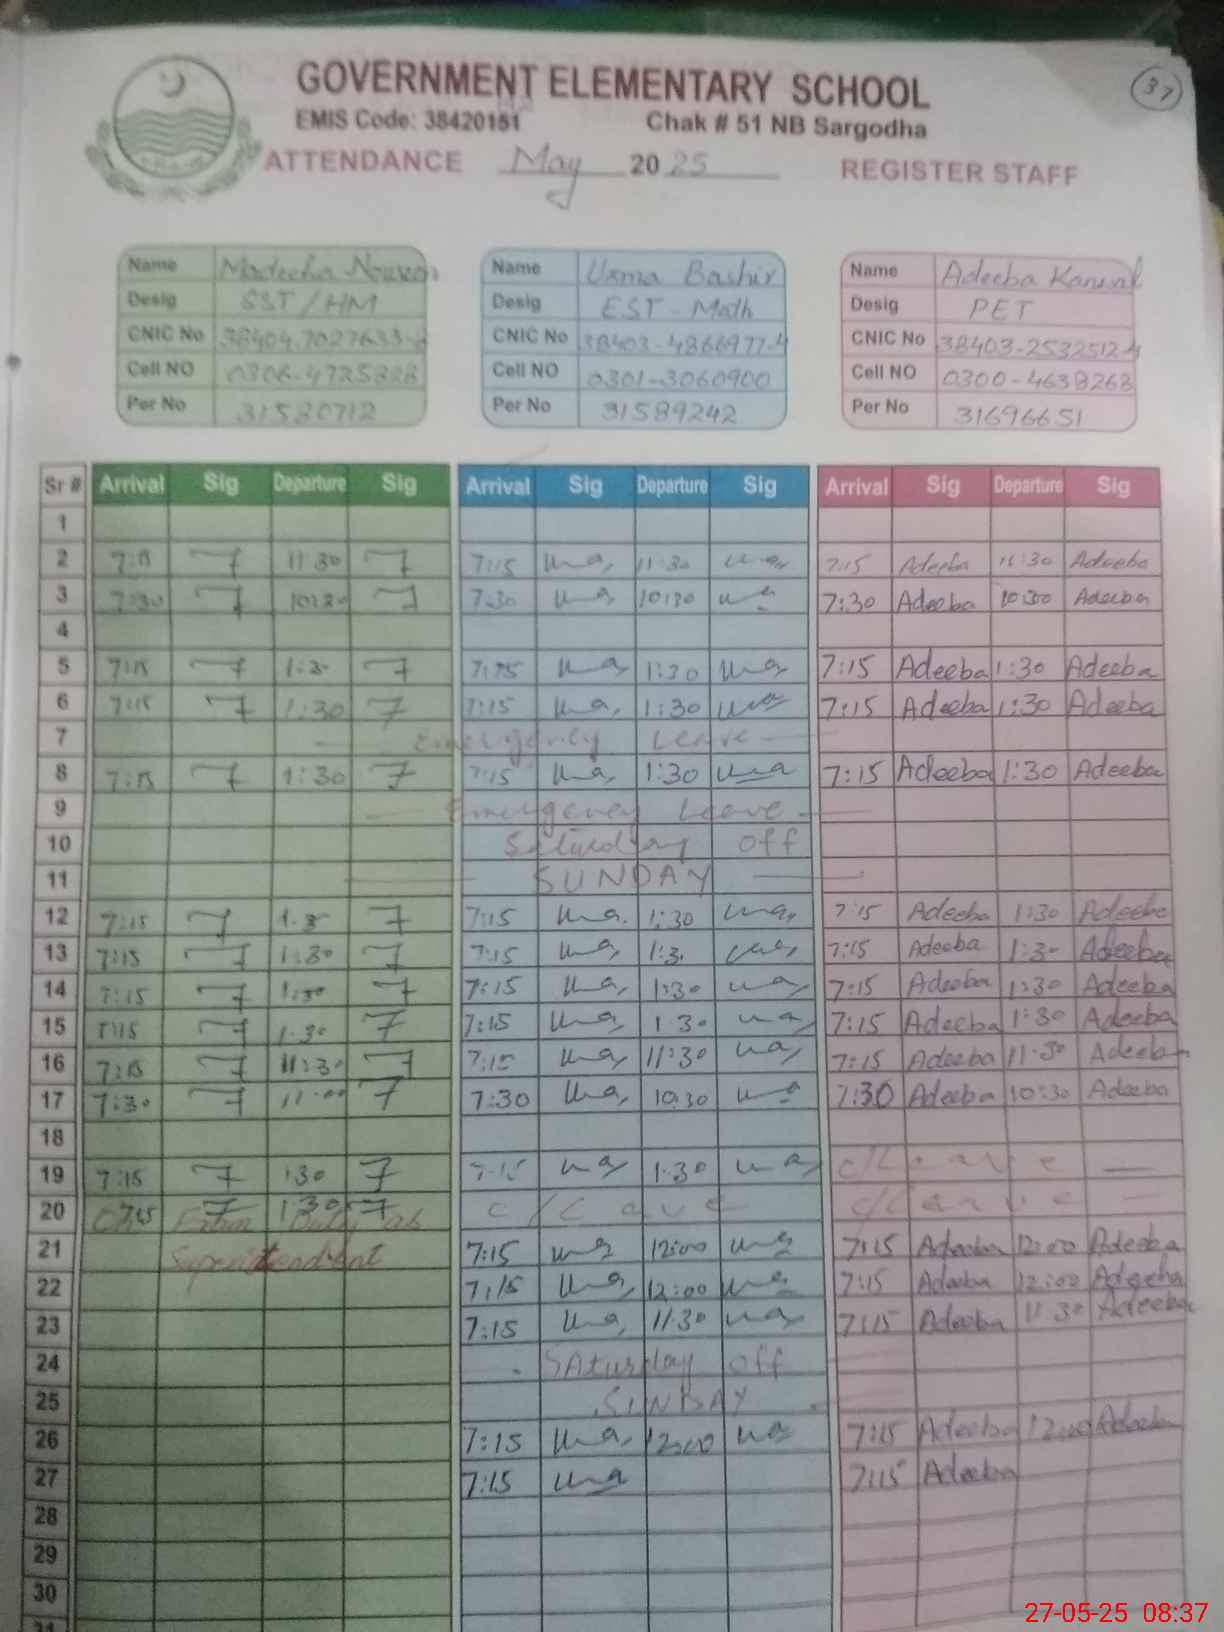 37
GOVERNMENT ELEMENTARY SCHOOL
EMIS Code: 38420151 Chak # 51 NB Sargodha
ATTENDANCE May 2025 REGISTER STAFF
Name Madeeha Noureen Name Uzma Bashir Name Adeeba Kanwal
Desig SST/HM Desig EST-Math Desig PET
CNIC No CNIC No 38403-4866977-4 CNIC No 38403-2532512-4
Cell NO 0306-4725828 Cell NO 0301-3060900 Cell NO 0300-4638263
Per No 31580712 Per No 31589242 Per No 31696651
Sr # Arrival Sig Departure Sig Arrival Sig Departure Sig Arrival Sig Departure Sig
1
2 7:15 11:30 7:15 11:30 7:15 Adeeba 11:30 Adeeba
3 7:30 10:30 7:30 10:30 7:30 Adeeba 10:30 Adeeba
4
5 7:15 1:30 7:15 1:30 7:15 Adeeba 1:30 Adeeba
6 7:15 1:30 7:15 1:30 7:15 Adeeba 1:30 Adeeba
7 Emergency Leave
8 7:15 1:30 7:15 1:30 7:15 Adeeba 1:30 Adeeba
9 Emergency Leave
10 Saturday off
11 SUNDAY
12 7:15 1:30 7:15 1:30 7:15 Adeeba 1:30 Adeeba
13 7:15 1:30 7:15 1:30 7:15 Adeeba 1:30 Adeeba
14 7:15 1:30 7:15 1:30 7:15 Adeeba 1:30 Adeeba
15 7:15 1:30 7:15 1:30 7:15 Adeeba 1:30 Adeeba
16 7:15 11:30 7:15 11:30 7:15 Adeeba 11:30 Adeeba
17 7:30 11:00 7:30 10:30 7:30 Adeeba 10:30 Adeeba
18
19 7:15 1:30 7:15 1:30 c/Leave
20 7:15 1:30 c/Leave c/Leave
Exam Duty as
21 Superintendent 7:15 12:00 7:15 Adeeba 12:00 Adeeba
22 7:15 12:00 7:15 Adeeba 12:00 Adeeba
23 7:15 11:30 7:15 Adeeba 11:30 Adeeba
24 Saturday off
25 SUNDAY
26 7:15 12:00 7:15 Adeeba 12:00 Adeeba
27 7:15 7:15 Adeeba
28
29
30
31
27-05-25 08:37